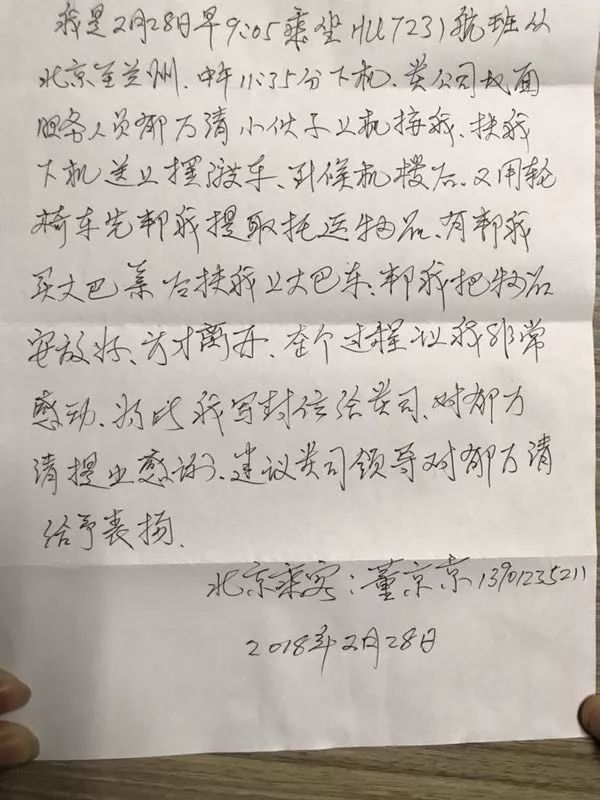 我是2月28日早9:05乘坐HU7231航班从
北京至兰州、中午11:35分下机、贵公司地面
服务人员郁万清小伙子上机接我、扶我
下机送上摆渡车、到候机楼后、又用轮
椅车先帮我提取托运物品、有帮我
买大巴票后扶我上大巴车、帮我把物品
安放好、方才离开、在个过程让我非常
感动、为此我写封信给贵司、对郁万
清提出感谢、建议贵司领导对郁万清
给予表扬、
北京乘客:董京京13901235211
2018年2月28日